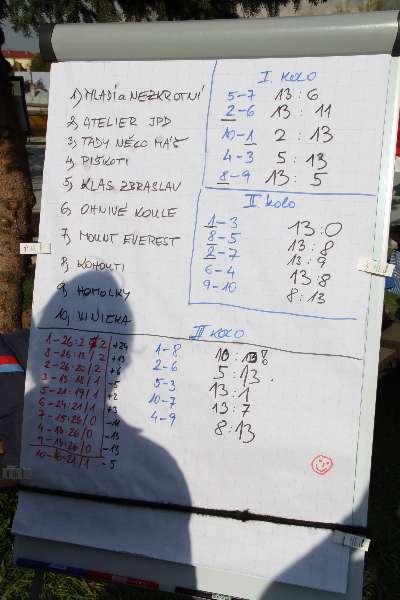 1) MLADÍ a NEZKROTNÍ
2) ATELIER JPD
3) TADY NĚCO MÁŠ
4) PIŠKOTI
5) KLAS ZBRASLAV
6) OHNIVÉ KOULE
7) MOUNT EVEREST
8) KOHOUTI
9) HOMOLKY
10) VINIČKA
I. KOLO
5-7 13:6
2-6 13:11
10-1 2:13
4-3 5:13
8-9 13:5
II KOLO
1-3 13:0
8-5 13:8
2-7 13:9
6-4 13:8
9-10 8:13
III KOLO
1-8
2-6 5:13
5-3 13:1
10-7 13:7
4-9 8:13
1-26:2 /2 +24
8-26:13/2 +13
2-26:20/2 +6
3-13:18/1 -5
5-21:19/1 +2
6-24:21/1 +3
7-15:26/0 -11
4-13:26/0 -13
9-13:26/0 -13
10- /1 -5